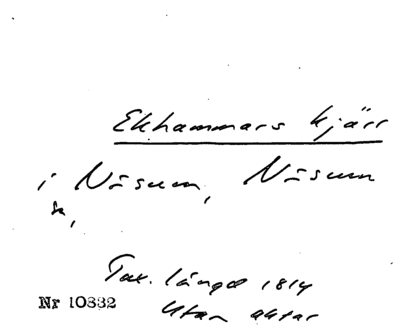 Ekhammars kjärr
i Näsum, Näsum
sn,
Tax. längd 1814
Nr 10832
utan aktar